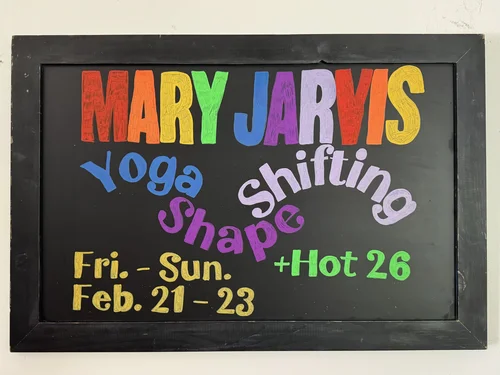 MARY JARVIS
Yoga
Shape
Shifting
Fri. - Sun.
+Hot 26
Feb. 21 - 23